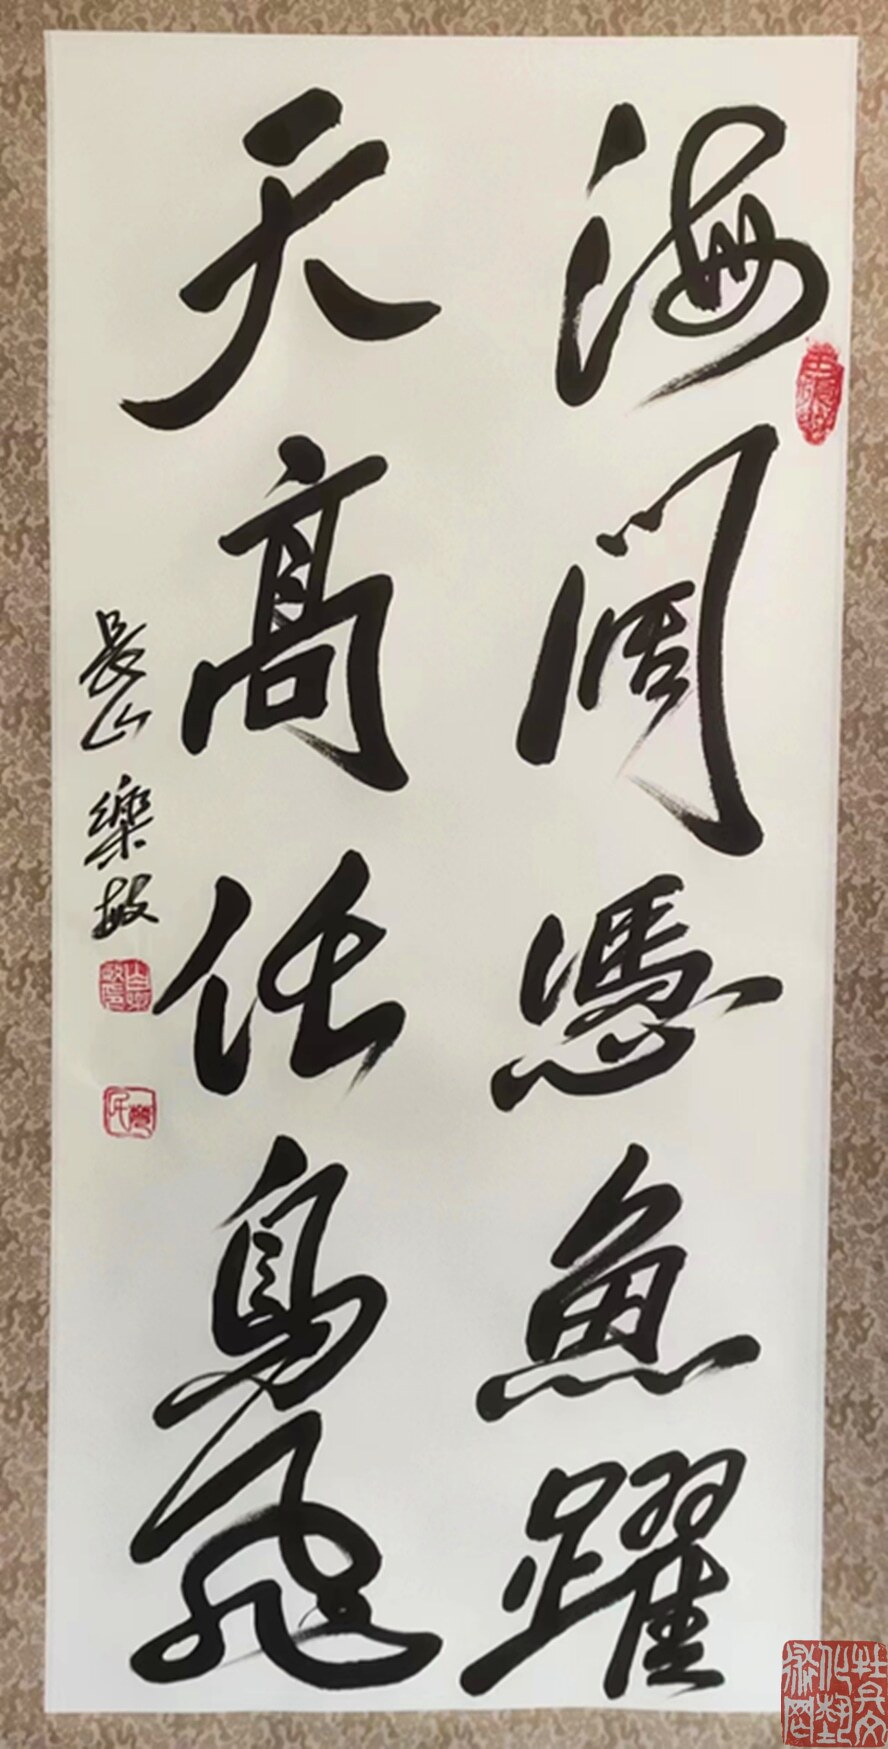 海阔憑魚躍
天高任鳥飛
長山樂敏